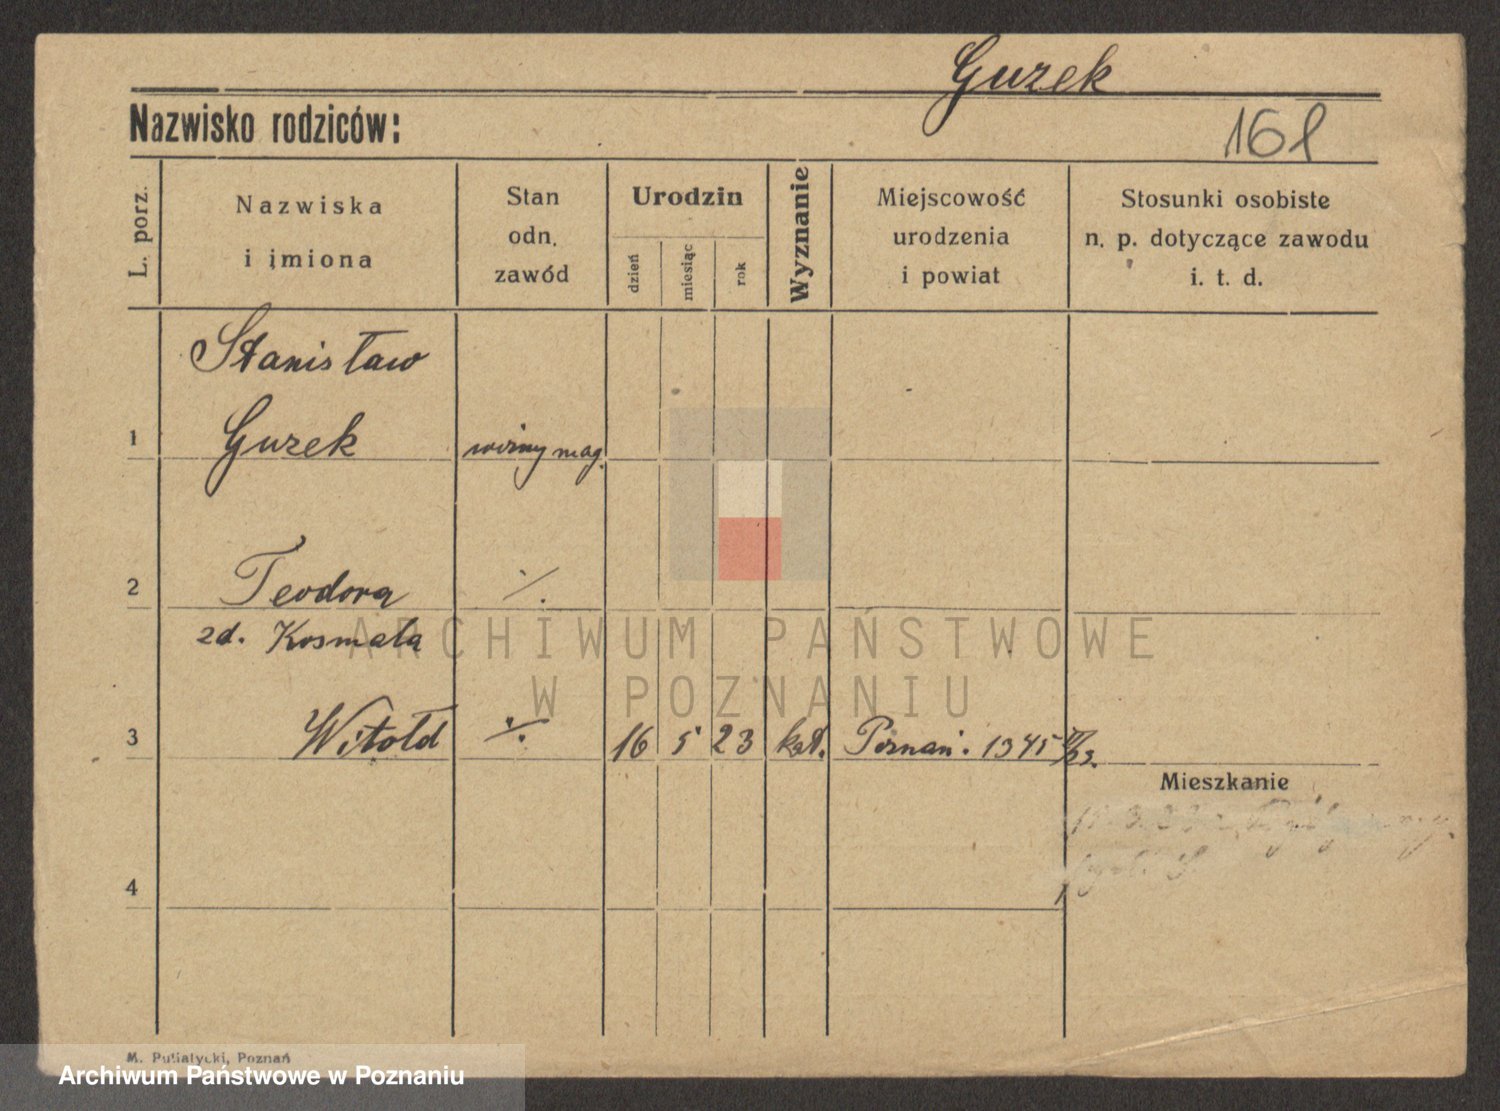 Guzek
Nazwisko rodziców:
168
L. porz.
Nazwiska
i imiona
Stan
odn.
zawód
Urodzin
dzień
miesiąc
rok
Wyznanie
Miejscowość
urodzenia
i powiat
Stosunki osobiste
n. p. dotyczące zawodu
i. t. d.
Stanisław
1 Guzek woźny mag.
2 Teodora ./.
zd. Kosmala
3 Witold ./. 16 5 23 kat. Poznań. 1345
Mieszkanie
4
ARCHIWUM PAŃSTWOWE
W POZNANIU
M. Pujiatycki, Poznań
Archiwum Państwowe w Poznaniu